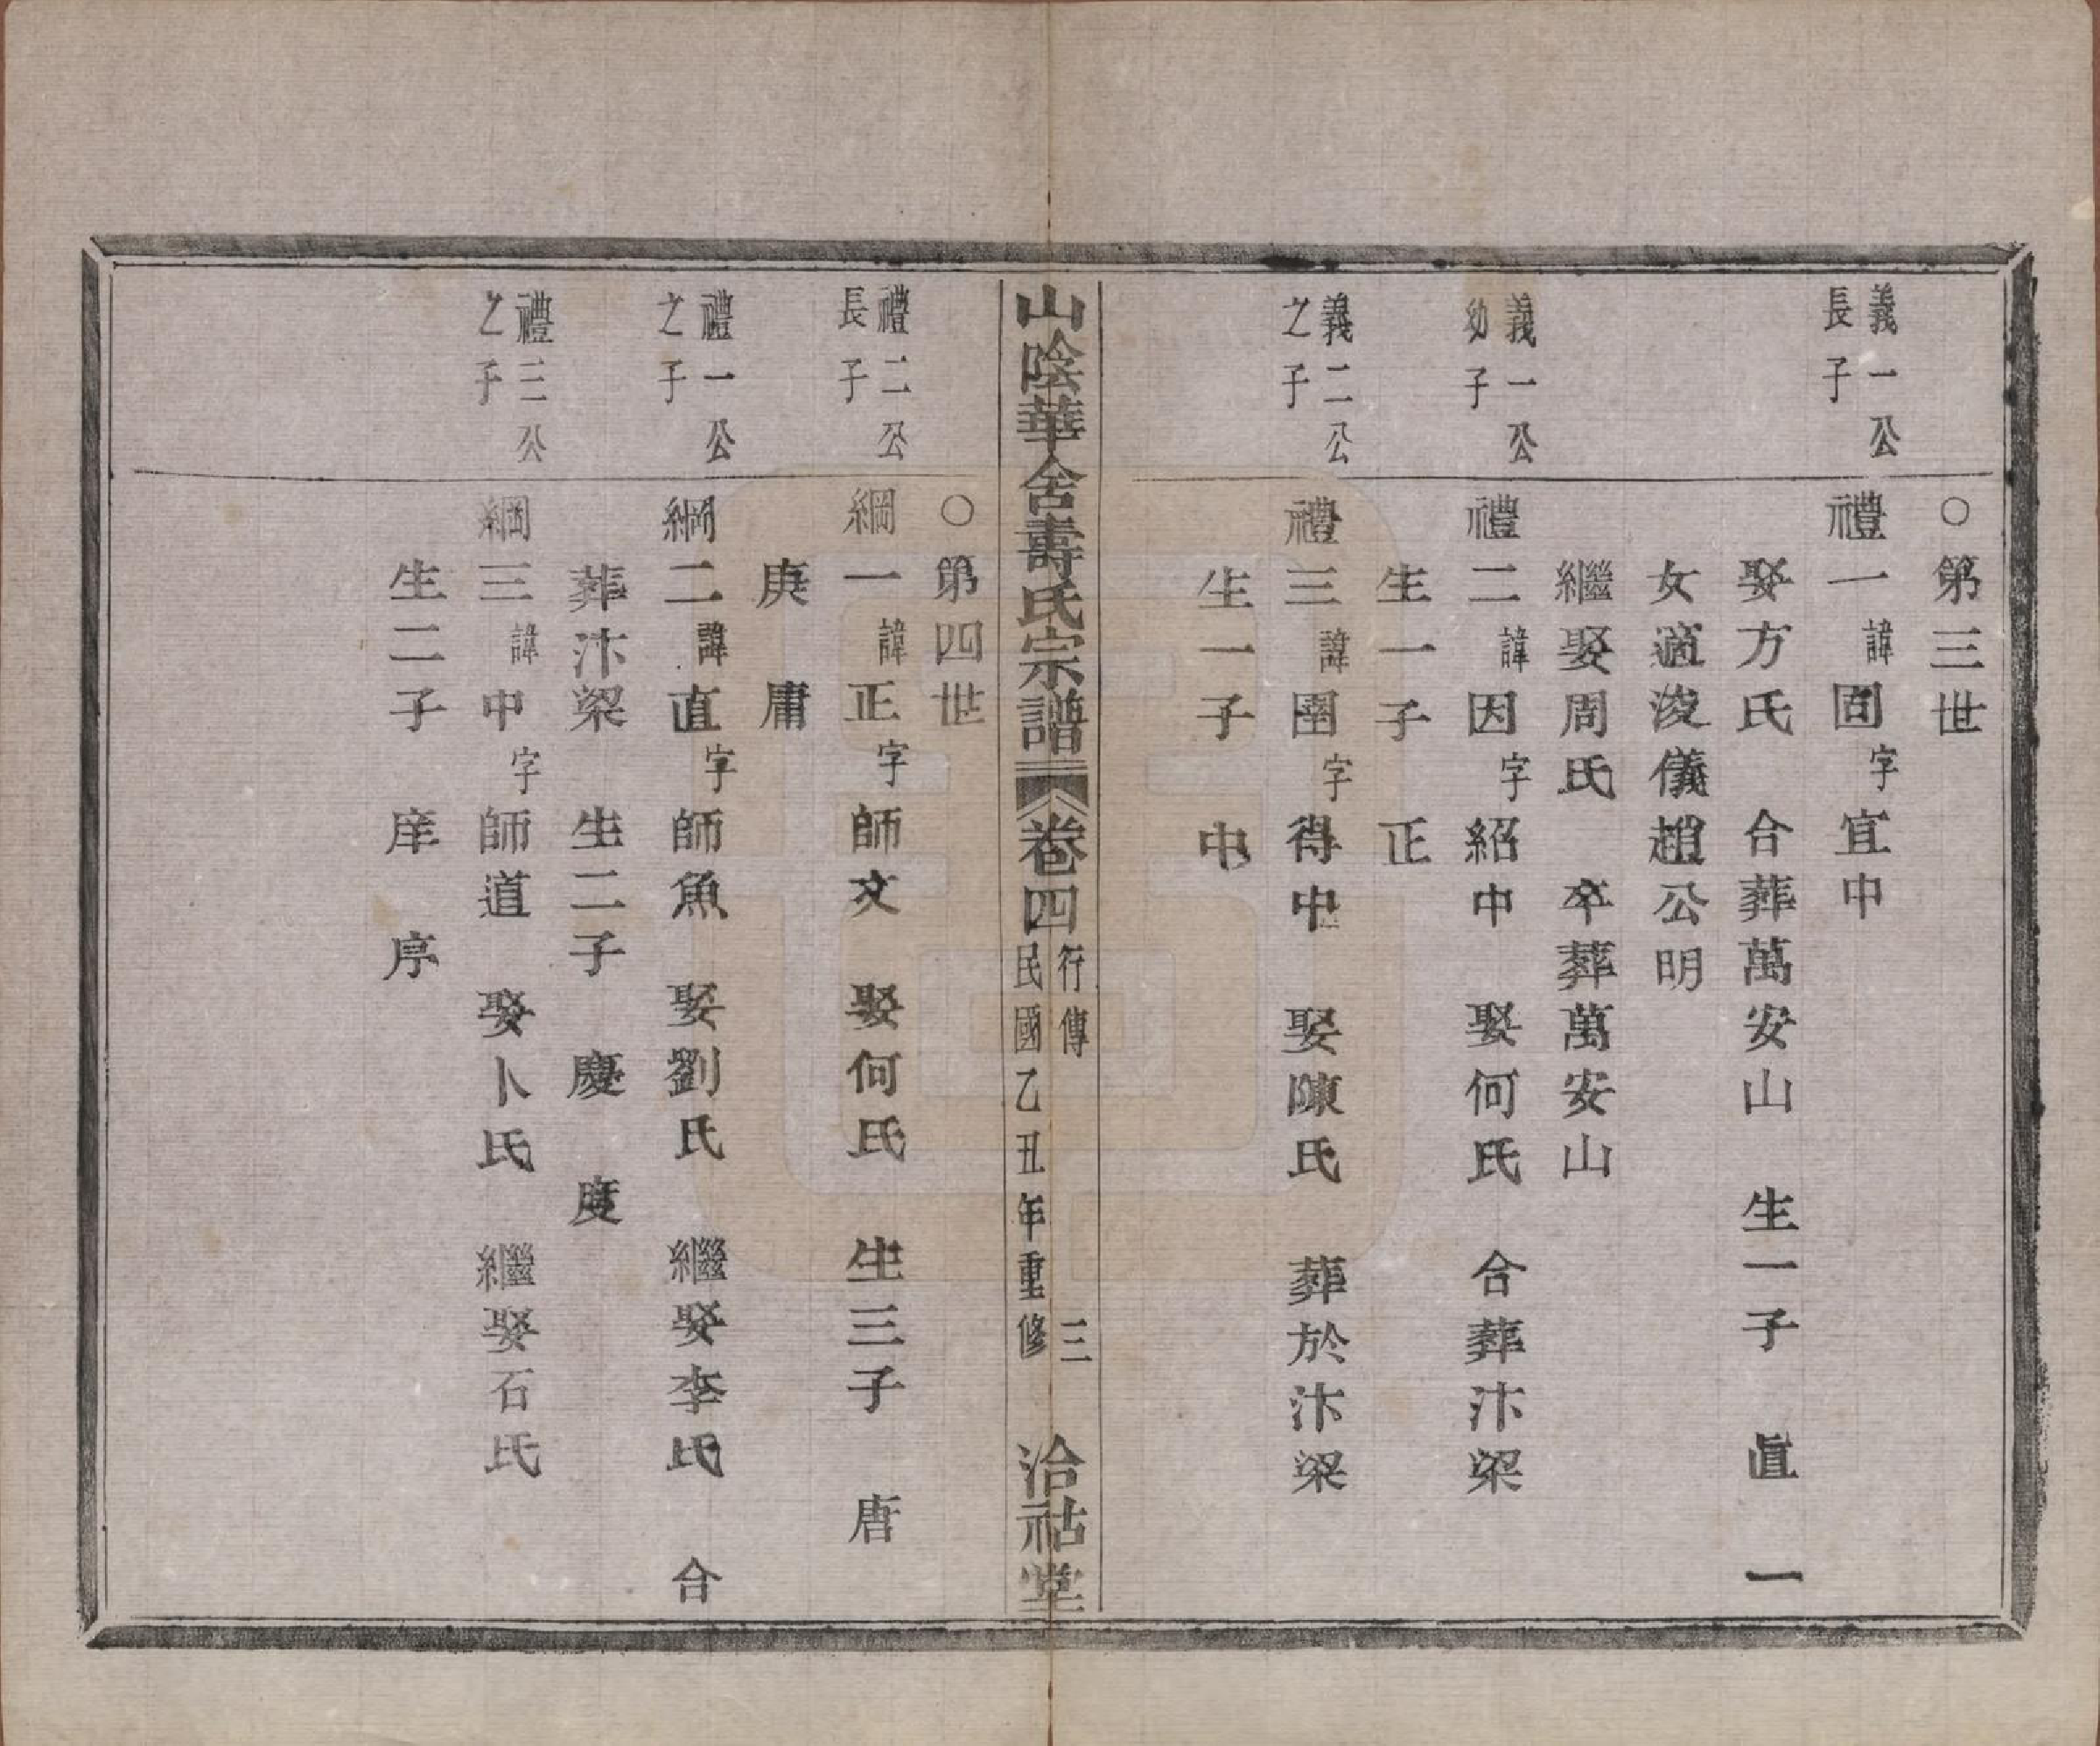 ○第三世
義一公
長子
禮一諱固字宜中
娶方氏　合葬萬安山　生一子　眞　一
女適浚儀趙公明
繼娶周氏　卒葬萬安山
義一公
幼子
禮二諱因字紹中　娶何氏　合葬汴梁
生一子　正
義二公
之子
禮三諱圉字得中　娶陳氏　葬於汴梁
生一子　中
山陰華舍壽氏宗譜　卷四　行傳　三
民國乙丑年重修
洽祜堂
○第四世
禮二公
長子
綱一諱正字師文　娶何氏　生三子　唐
庚　庸
禮一公
之子
綱二諱直字師魚　娶劉氏　繼娶李氏　合
葬汴梁　生二子　慶　度
禮三公
之子
綱三諱中字師道　娶卜氏　繼娶石氏
生二子　庠　序